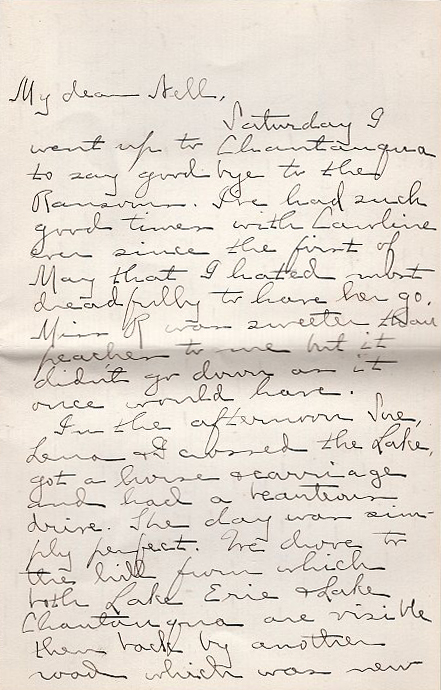 My dear Nell,
Saturday I
went up to Chautauqua
to say good bye to the
Ransoms. I've had such
good times with Caroline
ever since the first of
May that I hated most
dreadfully to have her go.
Miss R was sweeter than
peaches to me but it
didn't go down as it
once would have.
In the afternoon Sue,
Lena & I crossed the Lake,
got a horse & carriage
and had a beauteous
drive. The day was sim-
ply perfect. We drove to
the hill from which
both Lake Erie & Lake
Chautauqua are visible
then back by another
road which was new